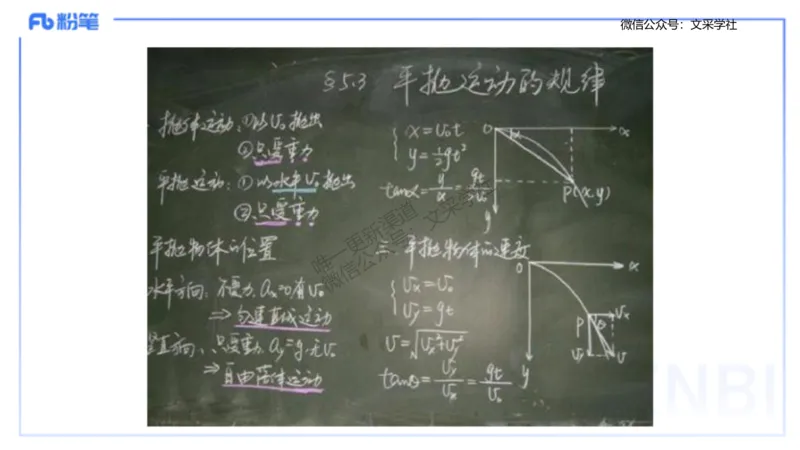 粉笔
微信公众号：文采学社
§5.3 平抛运动的规律
抛体运动：①以v₀抛出
②只受重力
平抛运动：①以水平v₀抛出
②只受重力
平抛物体的位置
水平方向：不受力，aₓ=0 有v₀
⇒匀速直线运动
竖直方向：只受重力，a_y=g，无v₀
⇒自由落体运动
x=v₀t
y=½gt²
tanα=y/x=gt/2v₀
O α x
P(x,y)
y
三、平抛物体的速度
vₓ=v₀
v_y=gt
v=√(vₓ²+v_y²)
tanθ=v_y/vₓ=gt/v₀
O x
P θ vₓ
v_y v
y
唯一更新渠道
微信公众号：文采学社
NBI